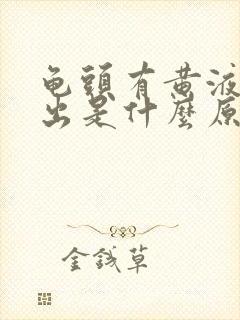 龟頭有黄液
出是什麼原
金钱草